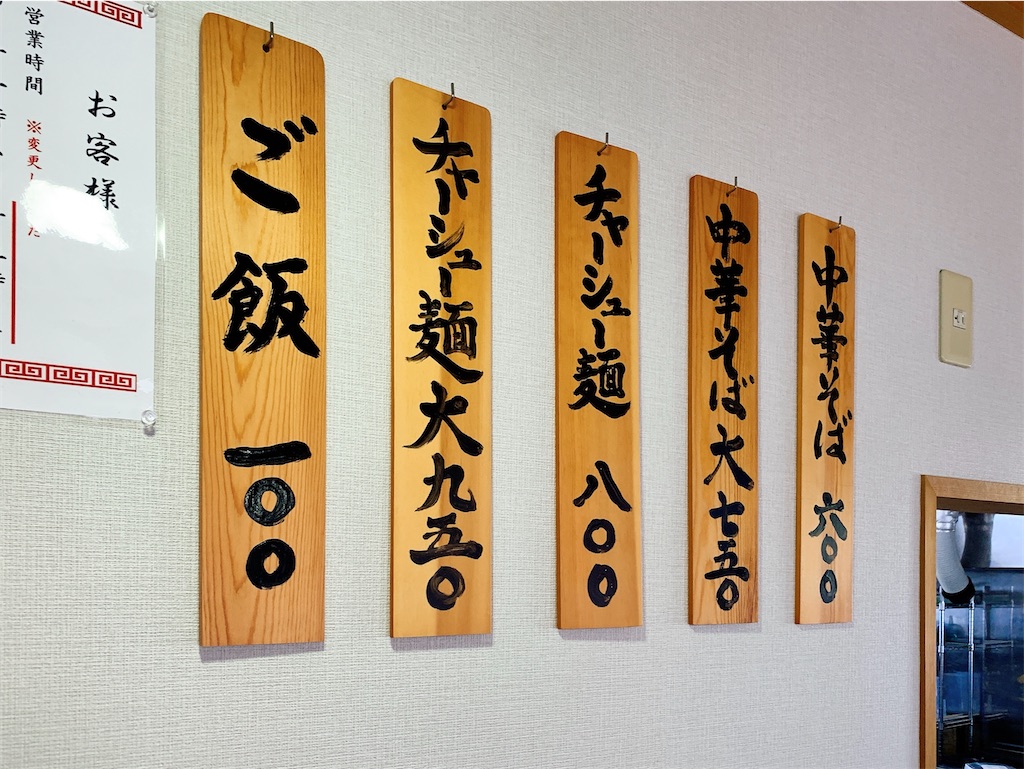 中華そば 六〇〇
中華そば大 七五〇
チャーシュー麺 八〇〇
チャーシュー麺大 九五〇
ご飯 一〇〇
お客様
営業時間 ※変更し
た